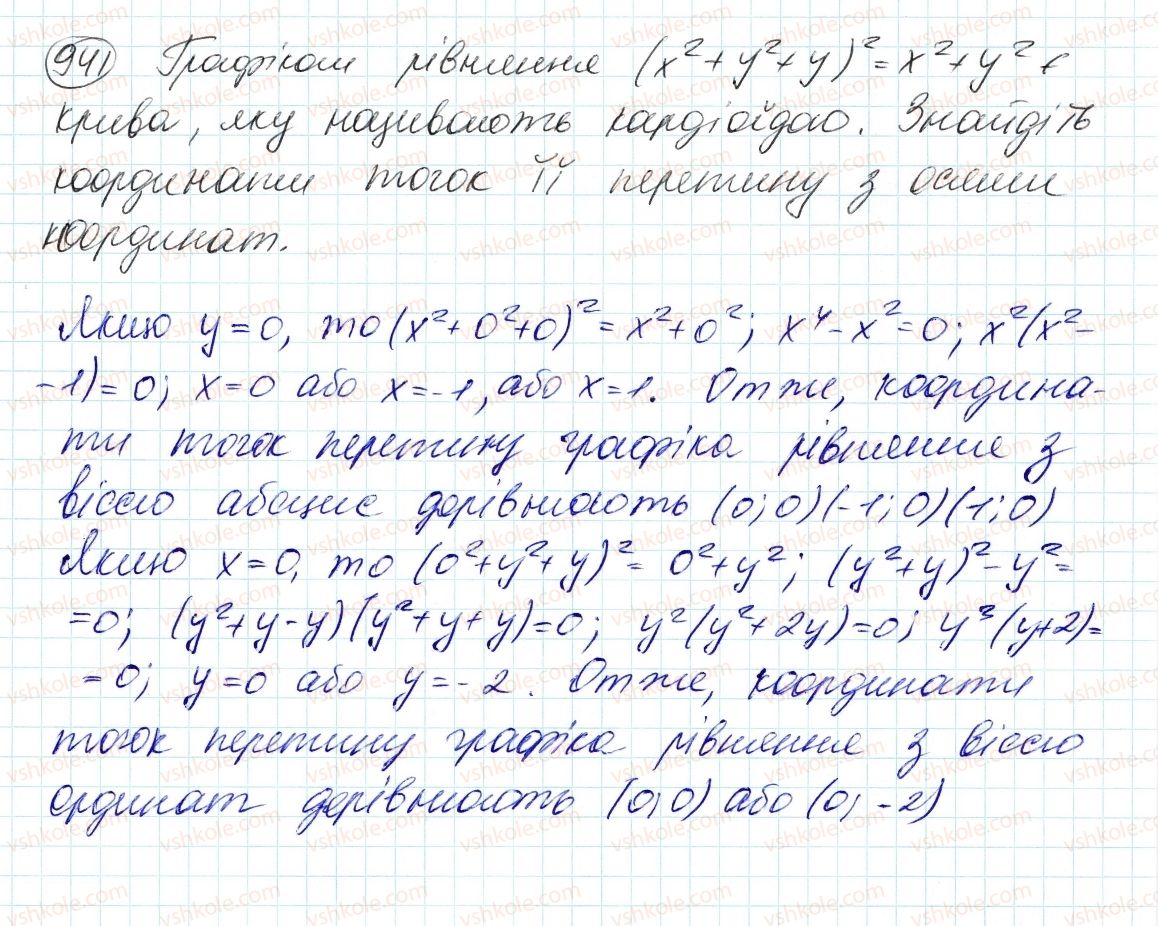 941 Графіком рівняння (x²+y²+y)²=x²+y² є
крива, яку називають кардіоїдою. Знайдіть
координати точок її перетину з осями
координат.
Якщо y=0, то (x²+0²+0)²=x²+0²; x⁴-x²=0; x²(x²-
-1)=0; x=0 або x=-1, або x=1. Отже, координа-
ти точок перетину графіка рівняння з
віссю абсцис дорівнюють (0;0)(-1;0)(1;0)
Якщо x=0, то (0²+y²+y)²=0²+y²; (y²+y)²-y²=
=0; (y²+y-y)(y²+y+y)=0; y²(y²+2y)=0; y³(y+2)=
=0; y=0 або y=-2. Отже, координати
точок перетину графіка рівняння з віссю
ординат дорівнюють (0;0) або (0;-2)